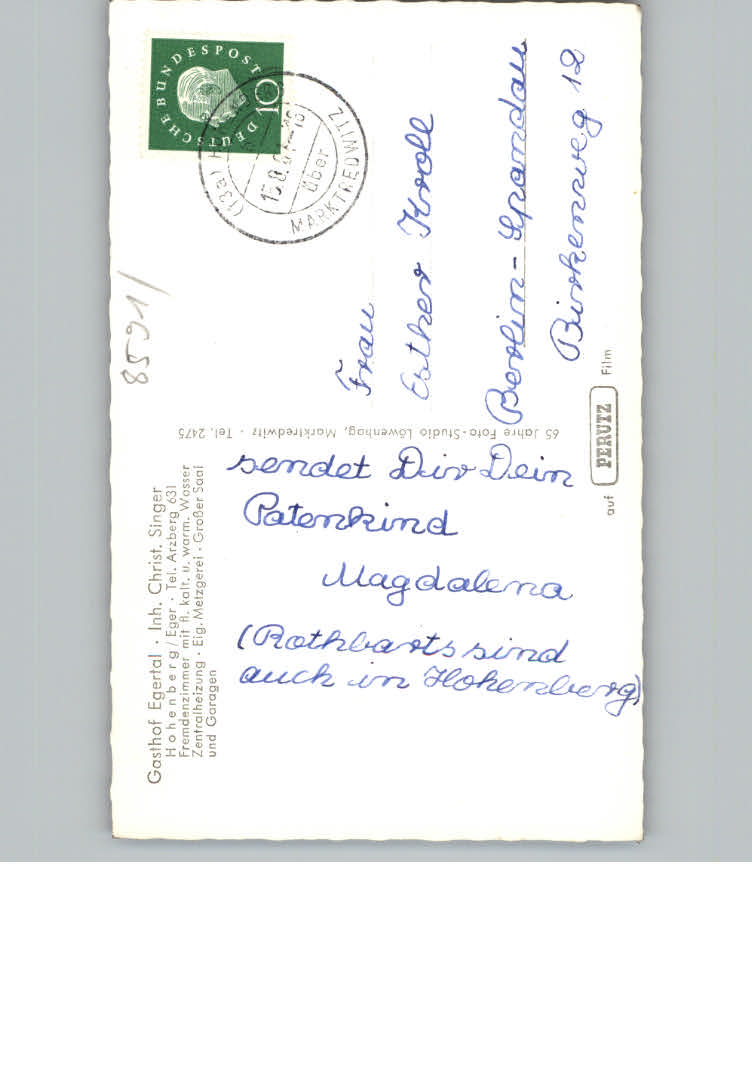 Gasthof Egertal · Inh. Christ. Singer
Hohenberg/Eger · Tel. Arzberg 631
Fremdenzimmer mit fl. kalt. u. warm. Wasser
Zentralheizung · Eig. Metzgerei · Großer Saal
und Garagen
sendet Dir Dein
Patenkind
Magdalena
(Rothbarts sind
auch in Hohenberg)
65 Jahre Foto-Studio Löwenhag, Marktredwitz · Tel. 2475
auf PERUTZ Film
8591/
DEUTSCHE BUNDESPOST
10
(13a) H
über
MARKTREDWITZ
Frau
Esther Kroll
Berlin-Spandau
Birkenweg 12